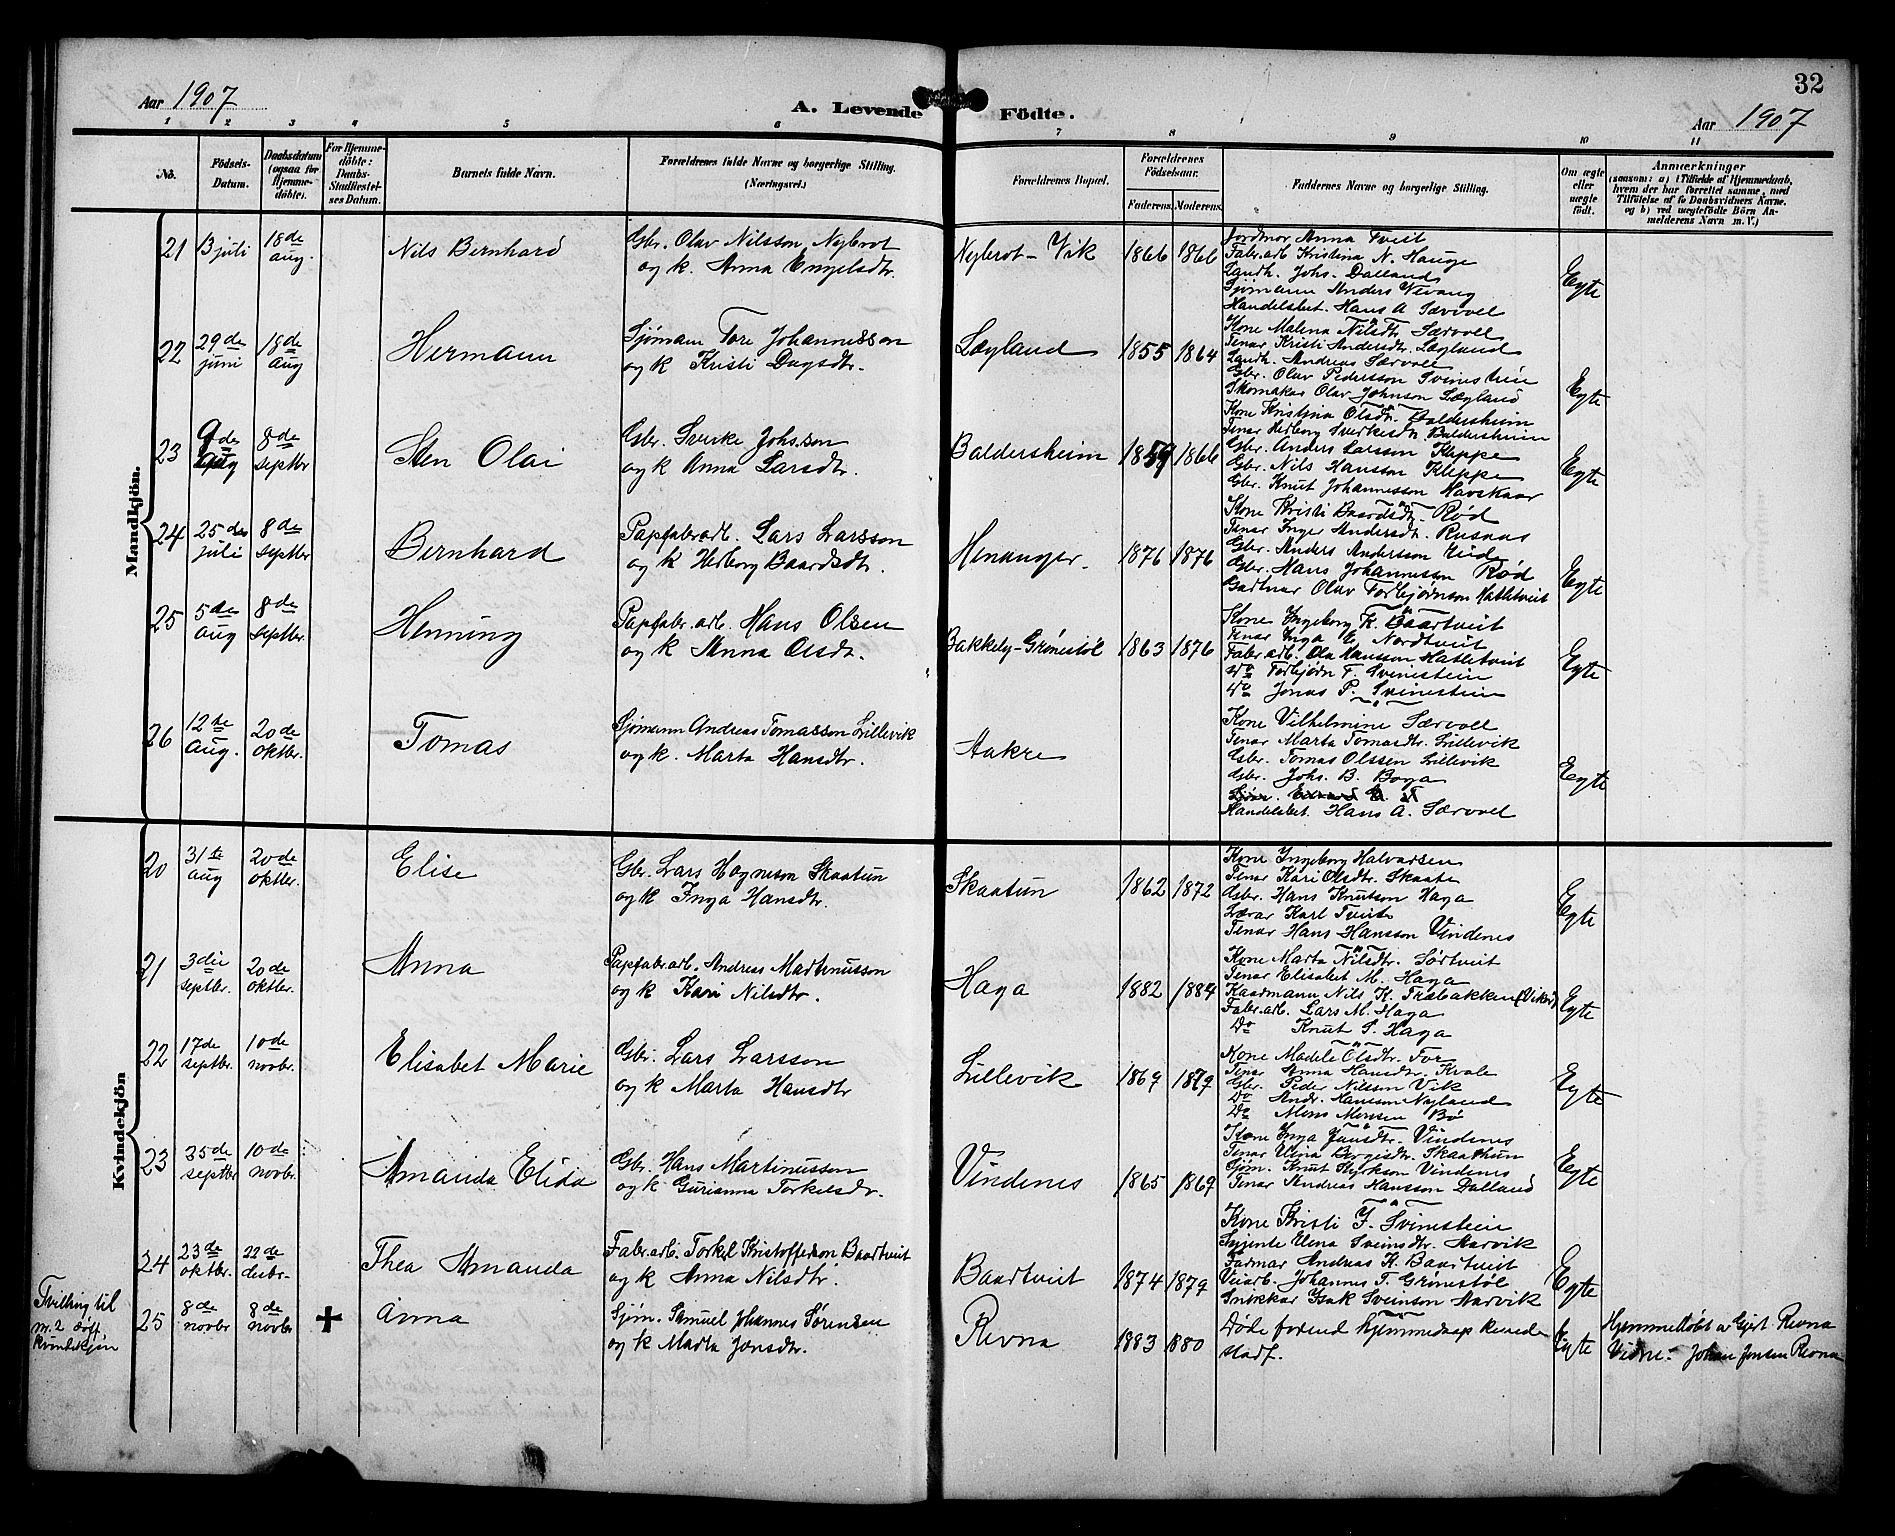 Aar 1907
A. Levende Födte.
32
Aar 1907
1 2 3 4 5 6 7 8 9 10 11
No.
Födsels-Datum.
Daabsdatum (ogsaa for Hjemmedöbte).
For Hjemmedöbte: Daabs-Stadfæstelses Datum.
Barnets fulde Navn.
Forældrenes fulde Navne og borgerlige Stilling.
(Næringsvei.)
Forældrenes Bopæl.
Forældrenes Födselsaar.
Faderens. Moderens.
Faddernes Navne og borgerlige Stilling.
Om ægte eller uægte födt.
Anmærkninger
(saasom: a) i Tilfælde af Hjemmedaab, hvem der har forrettet samme, med Tilföielse af to Daabsvidners Navne, og b) ved uægtefödte Börn Anmelderens Navn m. V.)
Mandkjön.
21 13 juli 18de aug. Nils Bernhard
Gbr. Olav Nilsson Nybrot
og k. Anna Engelsdtr.
Nybrot - Vik 1866 1866
Jordmor Anna Tveit
Fabr.arb Kristina N. Hauge
Landh. Johs. Dalland
Sjømann Anders Vevang
Handelsbet. Hans A. Særvoel
Egte
22 29de juni 18de aug Hermann
Sjømann Tore Johannesson
og k Kristi Dagsdtr.
Løyland 1855 1864
Kone Malena Nilsdtr. Særvoll
Tenar Kristi Andersdtr. Løyland
Landh. Andreas Særvoll
Gbr. Olav Pedersson Svinestein
Skomakar Olav Johnson Løyland
Egte
23 9de aug 8de septbr Sten Olai
Gbr. Sverke Johs.son
og k Anna Larsdtr.
Baldersheim 1859 1866
Kone Kristina Olsdtr. Baldersheim
Tenar Herborg Sverkesdtr. Baldersheim
Gbr. Anders Larsson Kleppe
Gbr. Nils Hansson Kleppe
Gbr. Knut Johannesson Havskaar
Egte
24 25de juli 8de septbr Bernhard
Papfabr.arb. Lars Larsson
og k Herborg Baardsdtr.
Henanger. 1876 1876
Kone Kristi Baardsdtr. Rød
Tenar Inger Andersdtr. Rusnas
Gbr. Anders Andersson Eide
Gbr. Hans Johannesson Rød
Gardtnar Olav Torbjørnson Hatletveit
Egte
25 5de aug 8de septbr. Henning
Papfabr.arb. Hans Olsen
og k Anna Olsdtr.
Bakkely-Grønestøl 1863 1876
Kone Ingeborg K. Baartveit
Tenar Inga E. Nordtveit
Fabr.arb. Ola Hansson Hatletveit
do Torbjørn T. Svinestein
do Jonas P. Svinestein
Egte
26 12te aug. 20de oktbr. Tomas
Sjømann Andreas Tomasson Lillevik
og k. Marta Hansdtr.
Aakre
Kone Vilhelmine Særvoll
Tenar Marta Tomasdtr. Lillevik
Gbr. Tomas Olssen Lillevik
Gbr. Johs. B. Boga
Handelsbet. Hans A. Særvoel
Egte
Kvindekjön
20 31te aug 20de oktbr. Elise
Gbr. Lars Hagneson Skaatun
og k Inga Hansdtr.
Skaatun 1862 1872
Kone Ingeborg Halvorsen
Tenar Kari Olsdtr. Skaate
Gbr. Hans Knutson Haga
Lærar Karl Tveite
Tenar Hans Hansson Vindenes
Egte
21 3die septbr. 20de oktbr. Anna
Papfabr.arb. Andreas Martinusson
og k Kari Nilsdtr.
Haga 1882 1884
Kone Marta Nilsdtr. Sørtveit
Tenar Elisabet M. Haga
Kaarmann Nils K. Træbakken (Viken)
Fabr.arb. Lars M. Haga
Do Knut S. Haga
Egte
22 17de septbr. 10de novbr. Elisabet Marie
Gbr. Lars Larsson
og k Marta Hansdtr
Lillevik 1869 1879
Kone Madele Olsdtr. Tor
Tenar Anna Hansdtr. Kvale
Gbr. Peder Nilsson Vik
Do Andr. Hansson Nyland
Do Mons Monsen Bø
Egte
23 25de septbr 10de novbr. Amanda Elida
Gbr. Hans Martinusson
og k Gurianna Torkelsdr.
Vindenes 1865 1869
Kone Inga Jansdtr. Vindenes
Tenar Elina Børgesdtr. Skaathun
Sjøm. Knut Kyrkson Vindenes
Tenar Andreas Hansson Dalland
Egte
24 23de oktbr. 22de desbr. Thea Amanda
Fabr.arb. Torkel Kristofferson Baartveit
og k Anna Nilsdtr.
Baartveit 1874 1879
Kone Kristi J. Svinestein
Gjente Elena Sveinsdtr. Aarvik
Farmar Andreas K. Baartveit
Veiarb. Johannes T. Grønestøl
Snikkar Isak Sveinson Aarvik
Egte
Tvilling til nr. 2 døff. kvindekjøn
25 8de novbr 8de novbr + Anna
Sjøm. Samuel Johannes Sørensen
og k Marta Jonsdtr.
Revna 1883 1880
Døde forend hjemmedaap kunde stadf.
Egte
Hjemmedøbt av Gjert Revna
Vidne: Johan Jonsen Revna